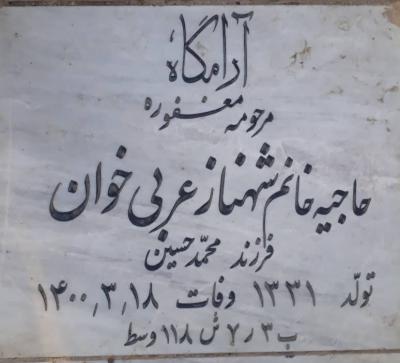 آرامگاه
مرحومه مغفوره
حاجیه خانم شهناز عربی خوان
فرزند محمدحسین
تولّد ۱۳۳۱ وفات ۱۴۰۰,۳,۱۸
ب ۳ ر ۷ ش ۱۱۸ وسط